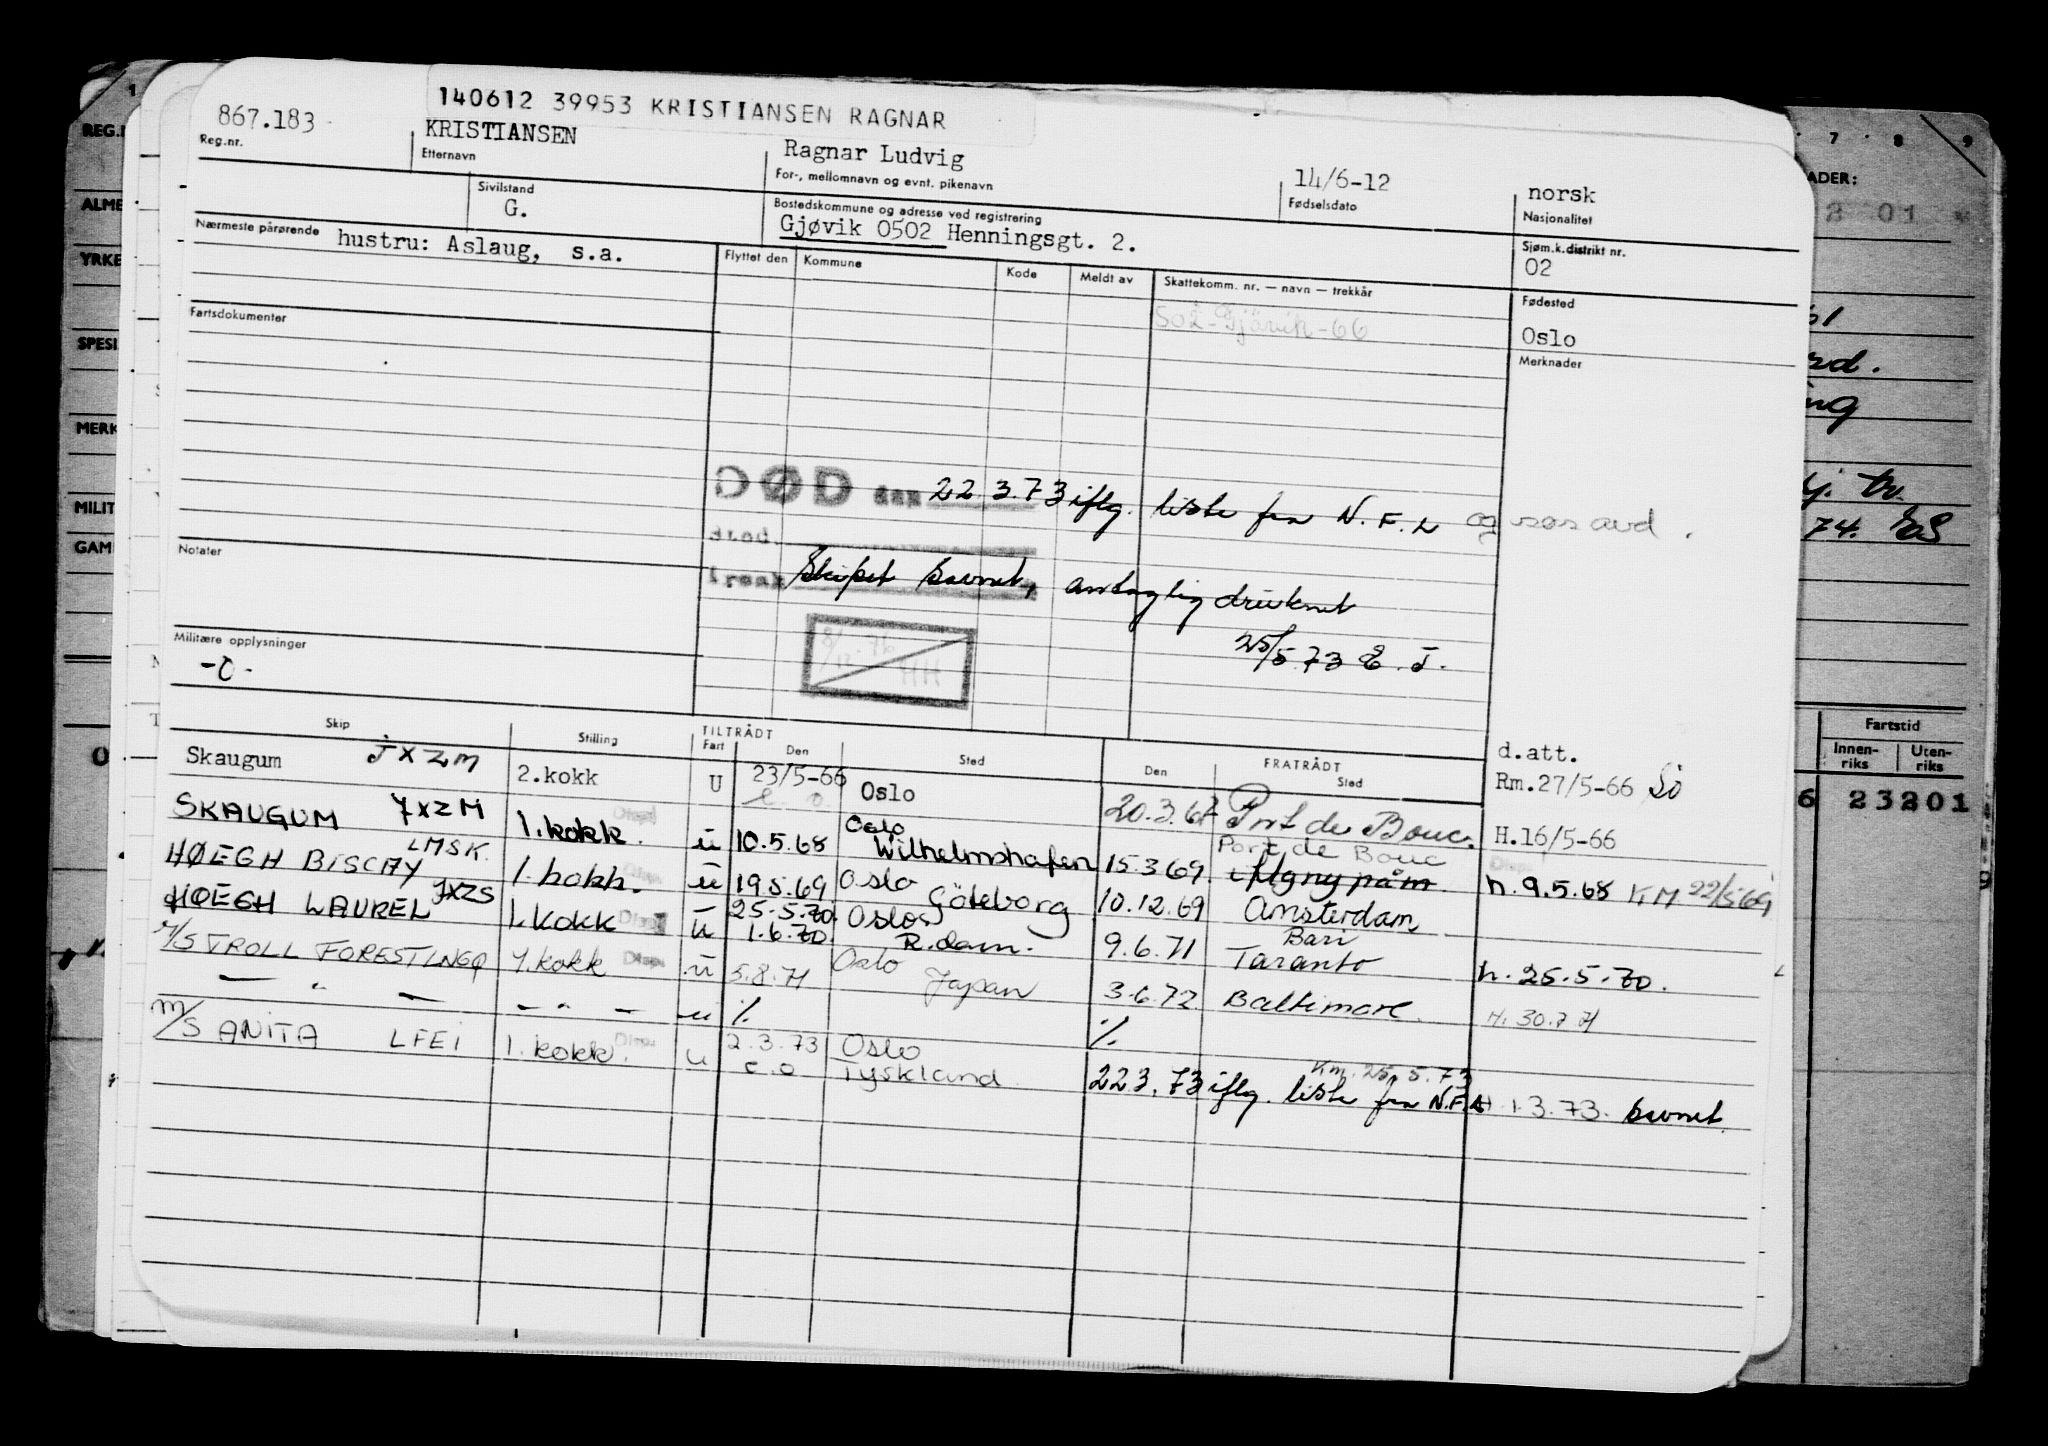 140612 39953 KRISTIANSEN RAGNAR
867.183
Reg.nr.
KRISTIANSEN
Etternavn
Ragnar Ludvig
For-, mellomnavn og evnt. pikenavn
14/6-12
Fødselsdato
norsk
Nasjonalitet
Sivilstand
G.
Bostedskommune og adresse ved registrering
Gjøvik 0502 Henningsgt. 2.
Sjøm.k.distrikt nr.
02
Nærmeste pårørende
hustru: Aslaug, s.a.
Flyttet den Kommune Kode Meldt av Skattekomm. nr. — navn — trekkår
502-Gjövik-66
Fødested
Oslo
Fartsdokumenter
Merknader
DØD den 22.3.73 iflg. liste fra N.F.L og sos avd.
Sted
Årsak Skipet savnet, antaglig druknet
25/5.73 E.J.
Notater
8/12-76 HH
Militære opplysninger
-0-
Skip Stilling TILTRÅDT Fart Den Sted Den FRATRÅDT Sted
d.att.
Skaugum JXZM 2.kokk U 23/5-66 Oslo 20.3.67 Port de Bouc. Rm.27/5-66 Sö
e. o.
H.16/5-66
SKAUGUM JXZM 1.kokk. u 10.5.68 Oslo Wilhelmshafen 15.3.69. Port de Bouc h. 9.5.68 KM 22/5 69
HØEGH BISCAY LMSK. 1.kokk. u 19.5.69 Oslo Göteborg 10.12.69 Amsterdam
HØEGH LAUREL JXZS 1.kokk u 25.5.70. 1.6.70. Oslo R.dam. 9.6.71 Bari Taranto h. 25.5.70.
M/S TROLL FOREST LNGQ 1.kokk u 5.8.71 Oslo Japan 3.6.72 Baltimore. H. 30.7 71
— " — — " — u ./. ./.
M/S ANITA LFEI 1.kokk. u 2.3.73 Oslo
e.o Tyskland 22.3.73 iflg. liste fra N.F.L H. 1.3.73. savnet.
Km. 25.5.73
REG.
ALME
YRKE
SPESI
MERK
MILIT
GAM
7 8 9
ADER:
3 01
61
74.
Fartstid
Innen-
riks
Uten-
riks
6 23201